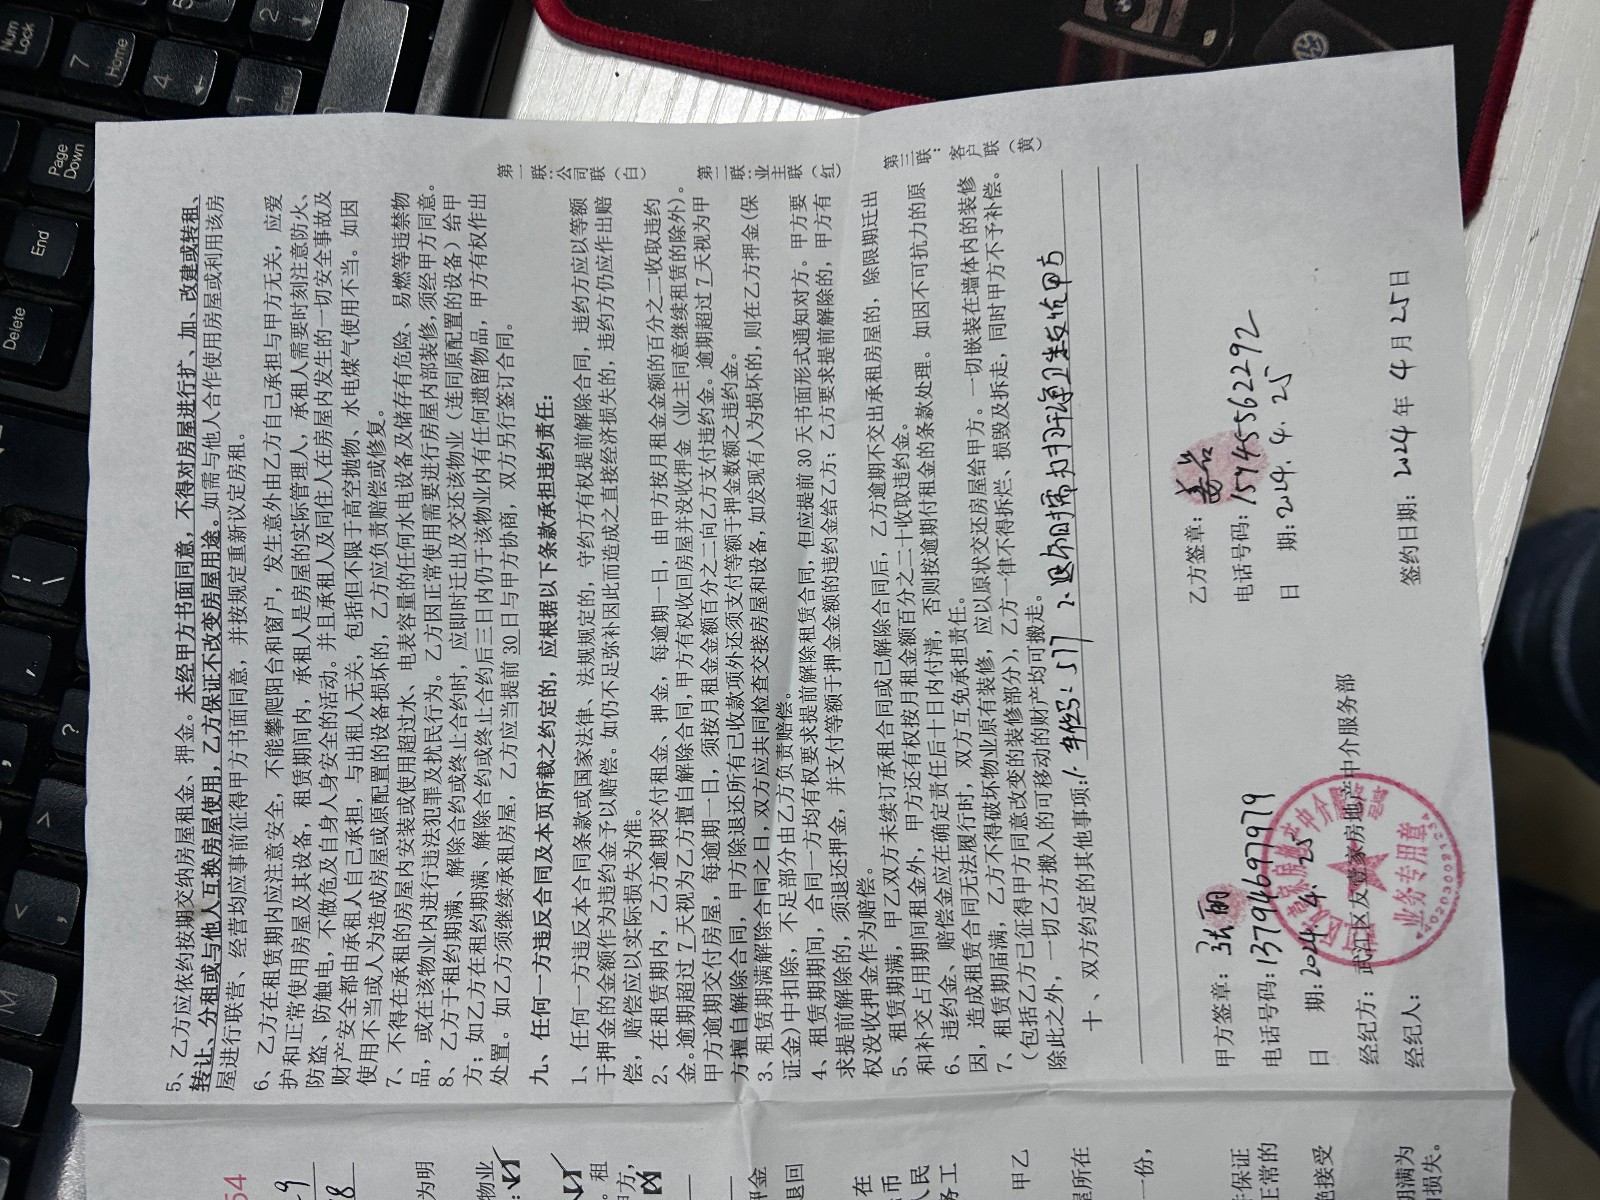 5、乙方应依约按期交纳房屋租金、押金。未经甲方书面同意，不得对房屋进行扩、加、改建或转租、
转让、分租或与他人互换房屋使用，乙方保证不改变房屋用途。如需与他人合作使用房屋或利用该房
屋进行联营、经营均应事前征得甲方书面同意，并按规定重新议定房租。
6、乙方在租赁期内应注意安全，不能攀爬阳台和窗户，发生意外由乙方自己承担与甲方无关，应爱
护和正常使用房屋及其设备，租赁期间内，承租人是房屋的实际管理人，承租人需要时刻注意防火、
防盗、防触电，不做危及自身人身安全的活动。并且承租人及同住人在房屋内发生的一切安全事故及
财产安全都由承租人自己承担，与出租人无关，包括但不限于高空抛物、水电煤气使用不当。如因
使用不当或人为造成房屋或原配置的设备损坏的，乙方应负责赔偿或修复。
7、不得在承租的房屋内安装或使用超过水、电表容量的任何水电设备及储存有危险、易燃等违禁物
品，或在该物业内进行违法犯罪及扰民行为。乙方因正常使用需要进行房屋内部装修，须经甲方同意。
8、乙方于租约期满、解除合约或终止合约时，应即时迁出及交还该物业（连同原配置的设备）给甲
方；如乙方在租约期满、解除合约或终止合约后三日内仍于该物业内有任何遗留物品，甲方有权作出
处置。如乙方须继续承租房屋，乙方应当提前30日与甲方协商，双方另行签订合同。
九、任何一方违反合同及本页所载之约定的，应根据以下条款承担违约责任：
1、任何一方违反本合同条款或国家法律、法规规定的，守约方有权提前解除合同，违约方应以等额
于押金的金额作为违约金予以赔偿。如仍不足弥补因此而造成之直接经济损失的，违约方仍应作出赔
偿，赔偿应以实际损失为准。
2、在租赁期内，乙方逾期交付租金、押金，每逾期一日，由甲方按月租金金额的百分之二收取违约
金。逾期超过7天视为乙方擅自解除合同，甲方有权收回房屋并没收押金（业主同意继续租赁的除外）。
甲方逾期交付房屋，每逾期一日，须按月租金金额百分之二向乙方支付违约金。逾期超过7天视为甲
方擅自解除合同，甲方除退还所有已收款项外还须支付等额于押金数额之违约金。
3、租赁期满解除合同之日，双方应共同检查交接房屋和设备，如发现有人为损坏的，则在乙方押金（保
证金）中扣除，不足部分由乙方负责赔偿。
4、租赁期期间，合同一方均有权要求提前解除租赁合同，但应提前30天书面形式通知对方。甲方要
求提前解除的，须退还押金，并支付等额于押金金额的违约金给乙方；乙方要求提前解除的，甲方有
权没收押金作为赔偿。
5、租赁期满，甲乙双方未续订承租合同或已解除合同后，乙方逾期不交出承租房屋的，除限期迁出
和补交占用期间租金外，甲方还有权按月租金额百分之二十收取违约金。
6、违约金、赔偿金应在确定责任后十日内付清，否则按逾期付租金的条款处理。如因不可抗力的原
因，造成租赁合同无法履行时，双方互免承担责任。
7、租赁期届满，乙方不得破坏物业原有装修，应以原状交还房屋给甲方。一切嵌装在墙体内的装修
（包括乙方已征得甲方同意改变的装修部分），乙方一律不得拆烂、损毁及拆走，同时甲方不予补偿。
除此之外，一切乙方搬入的可移动的财产均可搬走。
十、双方约定的其他事项：1. 577 2. 退房时需打扫干净卫生
甲方签章：张丽
乙方签章：
电话号码：13794697979
电话号码：15745562292
日 期：2024.4.25
日 期：2024.4.25
经纪方：武江区友壹家房地产中介服务部
经纪人：
签约日期：2024年4月25日
业务专用章
第一联：公司联（白）
第二联：业主联（红）
第三联：客户联（黄）
54
为明
物业
租
方，
押金
退回
在
币
人民
务工
甲乙
屋所在
一份，
保证
正常的
绝接受
期满为
损失。
Num Lock
7 Home
4
1 End
5
2
Page Down
End
Delete
M
<
>
?